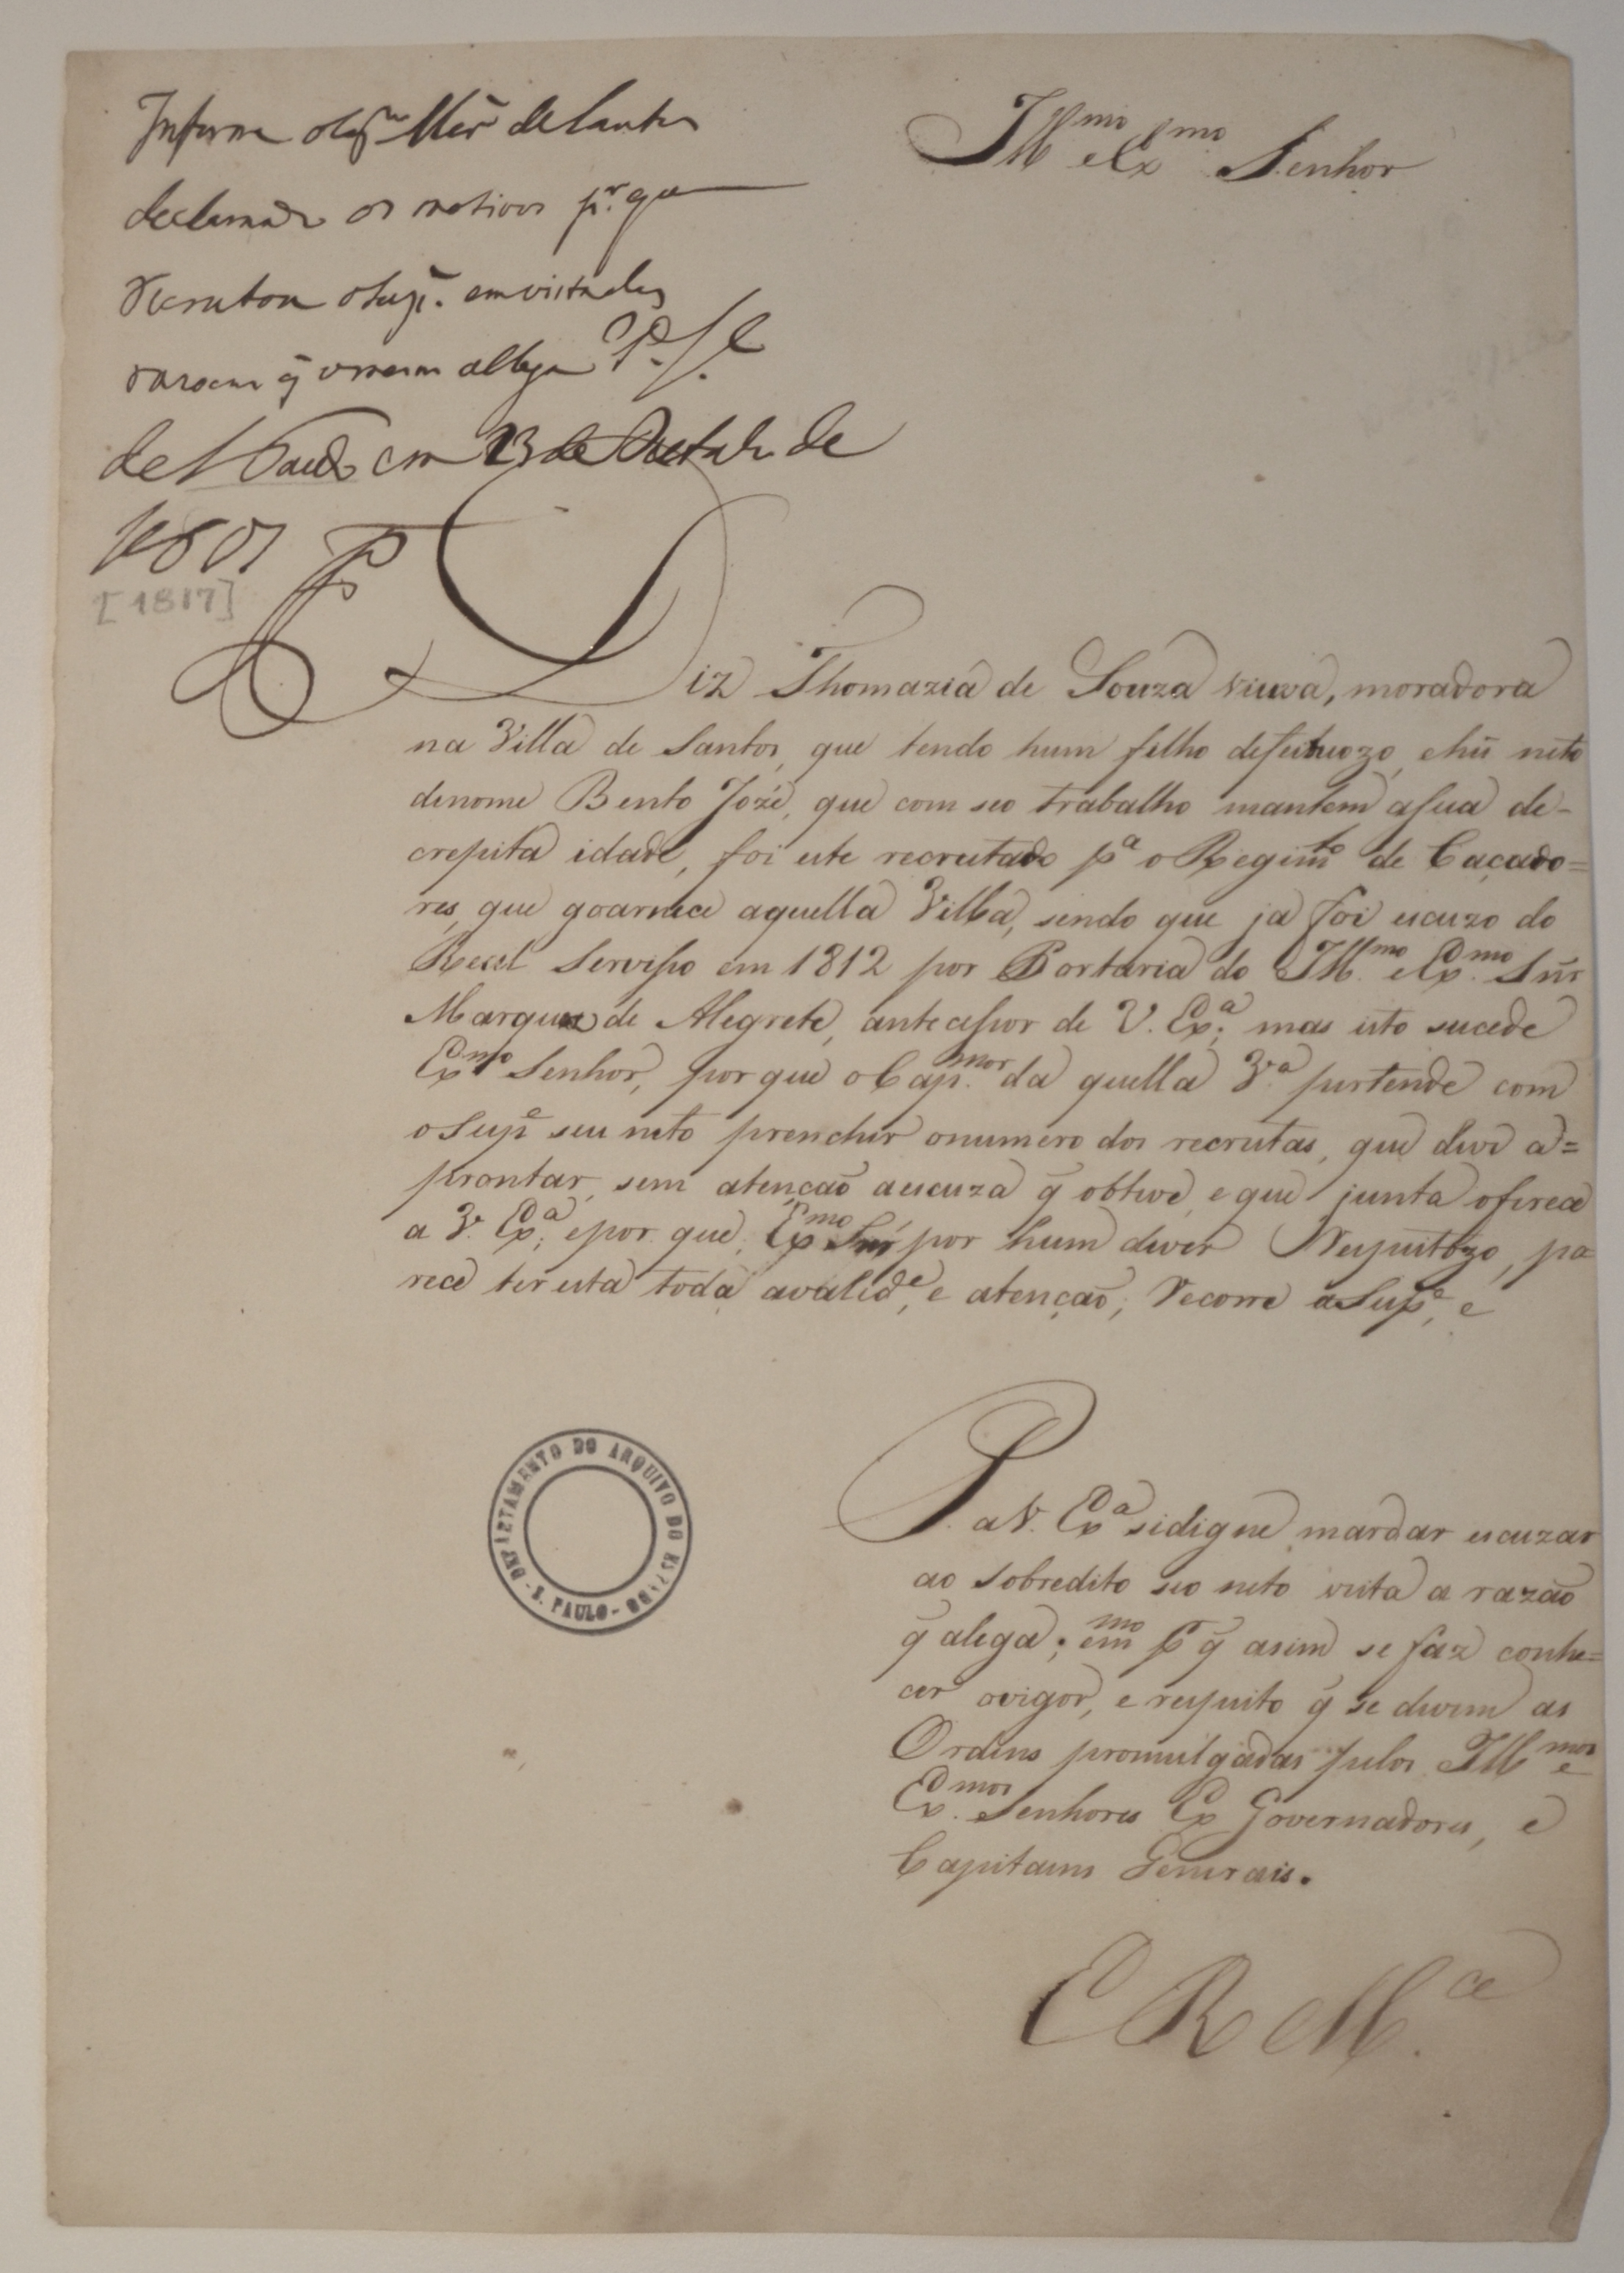 Informe o Cap.m Mór de Santos
declarando os motivos pr. que
recrutou o Sup.e em vista das
razoens q̃ o mesmo allega
de S. Paulo em 23 de Outubro de
[1817]
Ill.mo e Ex.mo Senhor
Diz Thomazia de Souza viuva, moradora
na Villa de Santos, que tendo hum filho defeituozo, e hũ neto
de nome Bento Jozé, que com seo trabalho mantem a sua de-
crepita idade, foi este recrutado p.a o Regim.to de Caçado=
res, que goarnece aquella Villa, sendo que ja foi escuzo do
Real Serviso em 1812 por Portaria do Ill.mo e Ex.mo Snr̃
Marquez de Alegrete, antecessor de V. Ex.a; mas isto sucede
Ex.mo Senhor, por que o Cap.mor da quella V.a pertende com
o Sup.e seu neto prencher o numero dos recrutas, que deve a=
prontar, sem atenção a escuza q̃ obteve, e que junta oferece
a V. Ex.a; e por que, Ex.mo Snr̃ por hum dever Respeitozo, pa
rece ter esta toda a valid.e, e atenção; Recorre a Sup.e, e
P. a V. Ex.a se digne mandar escuzar
ao sobredito seo neto vista a razão
q̃ alega; e m.mo p.r q̃ asim se faz conhe=
cer o vigor, e respeito q̃ se devem as
Ordens promulgadas pelos Ill.mos e
Ex.mos Senhores Ex Governadores, e
Capitaens Generais.
E R M.ce
DEPARTAMENTO DO ARQUIVO DO ESTADO
- S. PAULO -